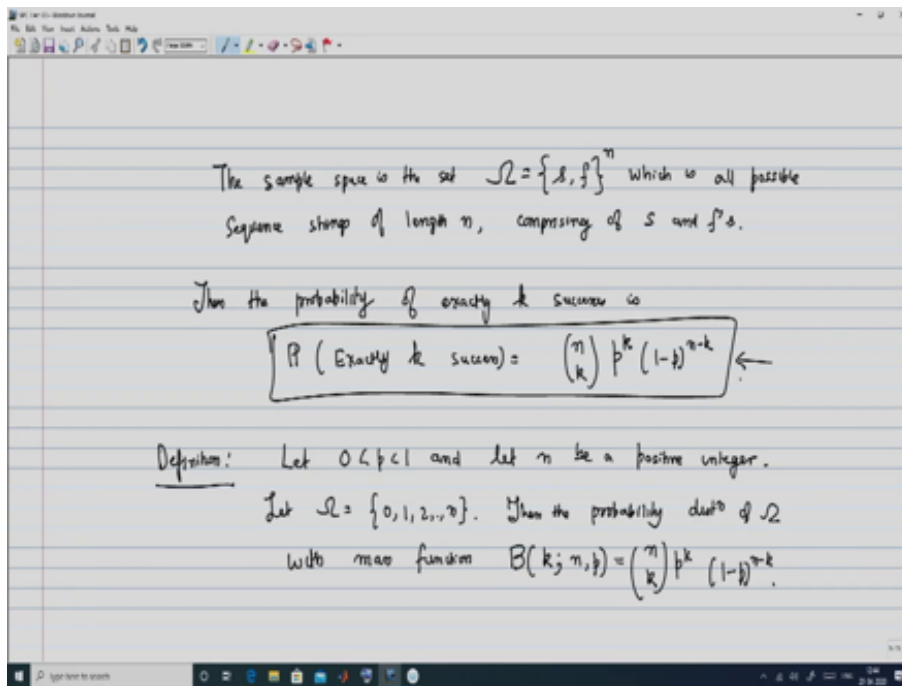 The sample space is the set Ω = {s, f}ⁿ which is all possible
Sequence strings of length n, comprising of s and f's.
Then the probability of exactly k success is
P ( Exactly k success) = (n k) p^k (1-p)^{n-k} ←
Definition: Let 0 < p < 1 and let n be a positive integer.
Let Ω = {0, 1, 2, .., n}. Then the probability distⁿ of Ω
with mass function B(k; n, p) = (n k) p^k (1-p)^{n-k}.
Type here to search